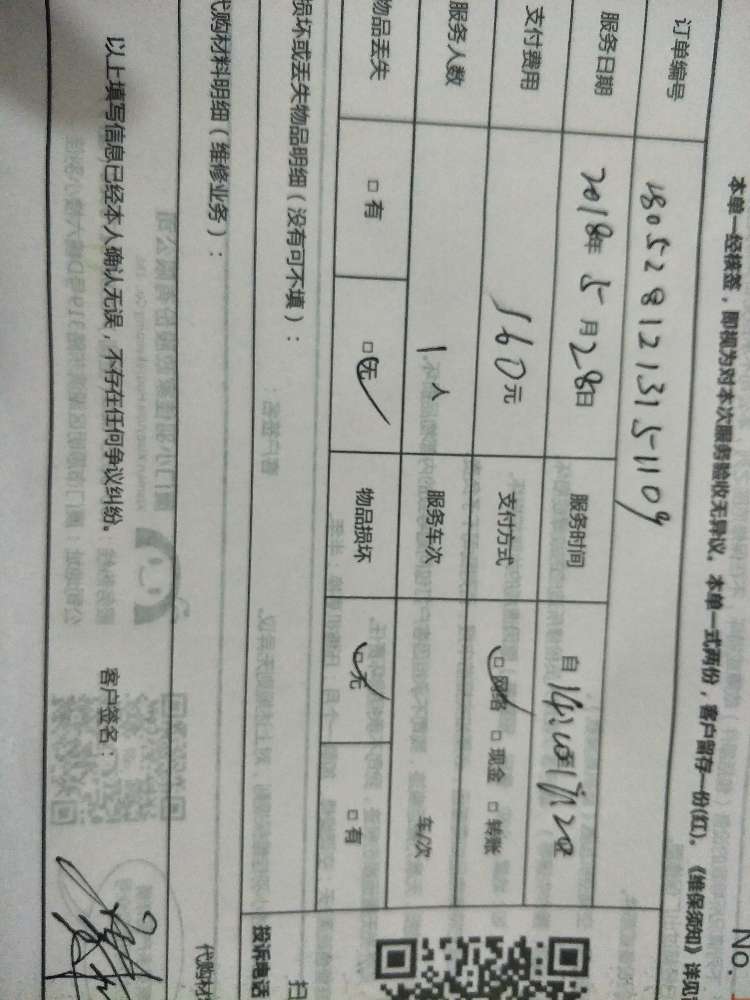 No.
本单一经核签，即视为对本次服务验收无异议。本单一式两份，客户留存一份(红)。《维保须知》详见
订单编号 1805281213151109
服务日期 2018年5月28日 服务时间 自14:20至17:20
支付费用 160元 支付方式 □网络 □现金 □转账
服务人数 1人 服务车次 车/次
物品丢失 □有 □无 物品损坏 □无 □有
损坏或丢失物品明细（没有可不填）：
投诉电话
扫
代购材料明细（维修业务）：
代购材
以上填写信息已经本人确认无误，不存在任何争议纠纷。 客户签名：